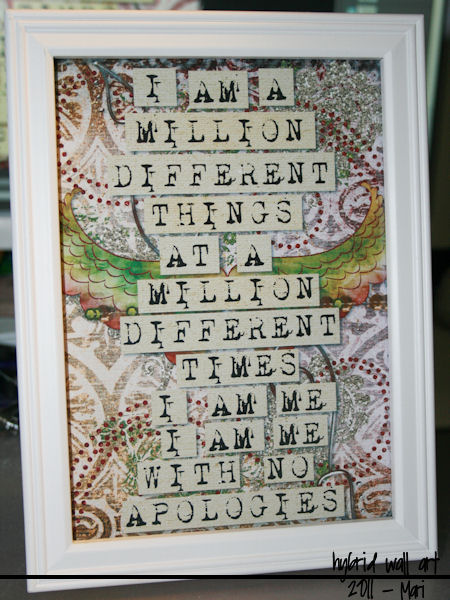 I AM A
MILLION
DIFFERENT
THINGS
AT A
MILLION
DIFFERENT
TIMES
I AM ME
I AM ME
WITH NO
APOLOGIES
hybrid wall art
2011 - Mari